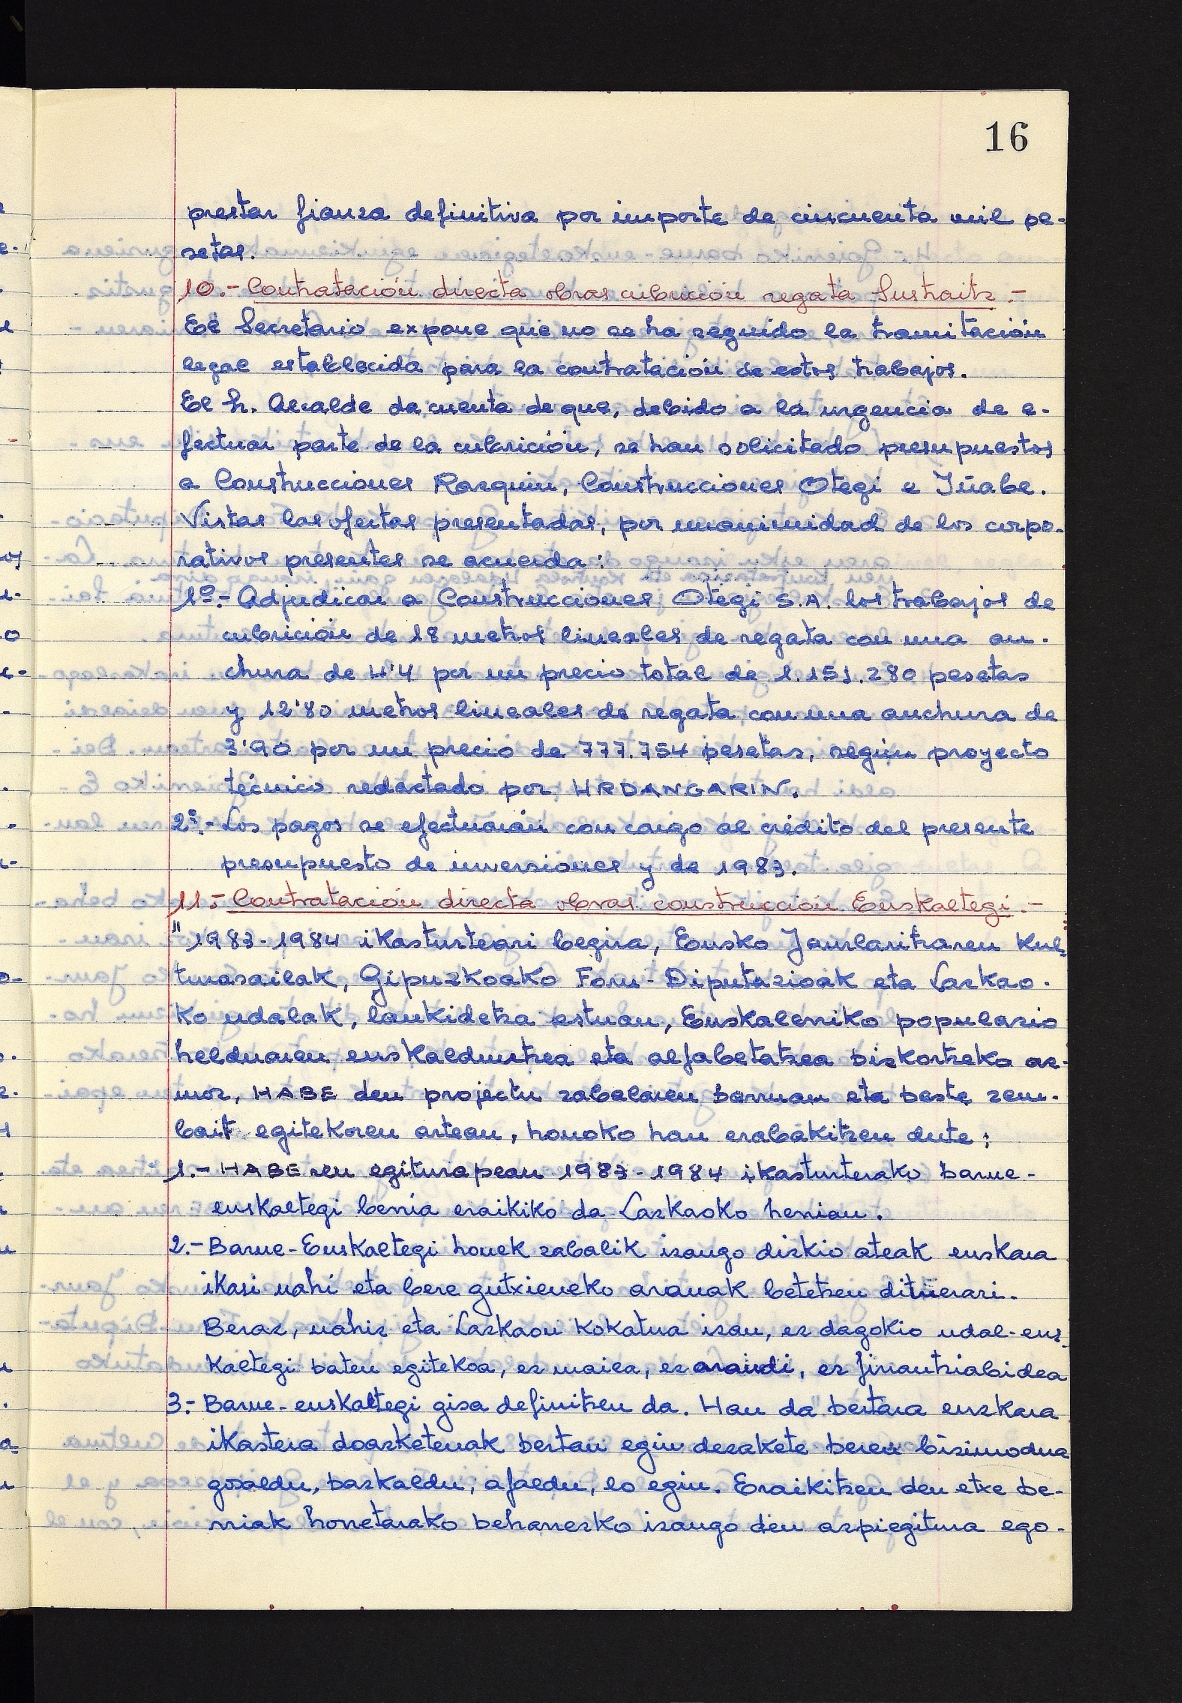 16
prestar fianza definitiva por importe de cincuenta mil pe-
setas.
10.- Contratación directa obras cubrición regata Sustraitz.-
El Secretario expone que no se ha seguido la tramitación
legal establecida para la contratación de estos trabajos.
El Sr. Alcalde da cuenta de que, debido a la urgencia de e-
fectuar parte de la cubrición, se han solicitado presupuestos
a Construcciones Razquin, Construcciones Otegi e Iñabe.
Vistas las ofertas presentadas, por unanimidad de los corpo-
rativos presentes se acuerda:
1º.- Adjudicar a Construcciones Otegi S.A. los trabajos de
cubrición de 18 metros lineales de regata con una an-
chura de 4'4 por un precio total de 1.151.280 pesetas
y 12'80 metros lineales de regata con una anchura de
3'90 por un precio de 777.754 pesetas, según proyecto
técnico redactado por URDANGARIN.
2º.- Los pagos se efectuarán con cargo al crédito del presente
presupuesto de inversiones y de 1983.
11.- Contratación directa obras construcción Euskaltegi.-
"1983-1984 ikasturteari begira, Eusko Jaurlaritzaren Kul-
turasailak, Gipuzkoako Foru-Diputazioak eta Lazkao-
ko udalak, lankidetza estuan, Euskalerriko populazio
helduaren euskalduntzea eta alfabetatzea bizkortzeko as-
moz, HABE den projectu zabalaren barruan eta beste zem-
bait egitekoren artean, honoko hau erabakitzen dute:
1.- HABEren egiturapean 1983-1984 ikasturterako barne-
euskaltegi berria eraikiko da Lazkaoko herrian.
2.- Barne-Euskaltegi honek zabalik izango dizkio ateak euskara
ikasi nahi eta bere gutxieneko arauak betetzen dituenari.
Beraz, nahiz eta Lazkaon kokatua izan, ez dagokio udal-eus-
kaltegi baten egitekoa, ez maila, ez araudi, ez finantziabidea
3.- Barne-euskaltegi gisa definitzen da. Hau da bertara euskara
ikastera doazketenak bertan egin dezakete beren bizimodua
gosaldu, bazkaldu, afaldu, lo egin. Eraikitzen den etxe be-
rriak honetarako beharrezko izango den azpiegitura ego-